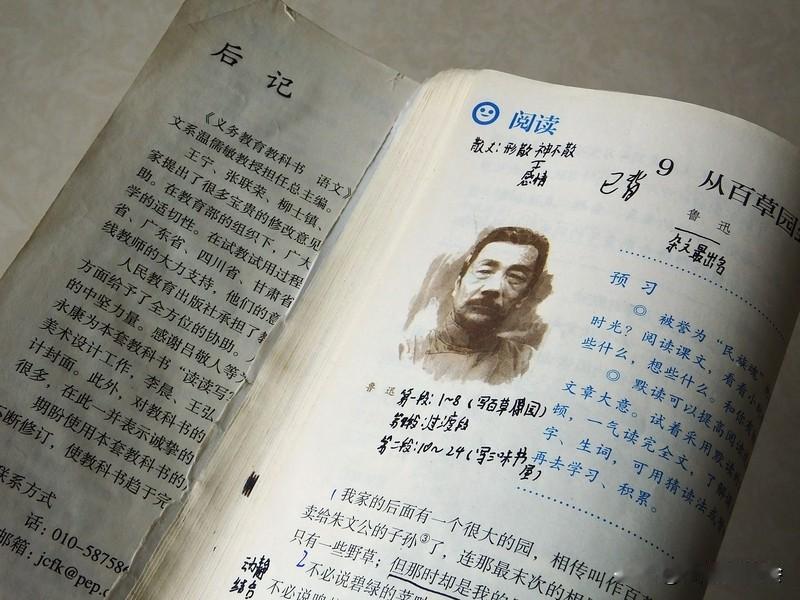 后 记
《义务教育教科书 语文》
文系温儒敏教授担任总主编。
王宁、张联荣、柳士镇、
家提出了很多宝贵的修改意见
助。在教育部的组织下，广大
学的适切性。在试教试用过程
省、广东省、四川省、甘肃省
线教师的大力支持，他们的意
人民教育出版社承担了教
方面给予了全方位的协助。
的中坚力量。感谢吕敬人等
永康为本套教科书“读读写
美术设计工作，李晨、王弘
计封面。此外，对教科书的
很多，在此一并表示诚挚的
期盼使用本套教科书的
不断修订，使教科书趋于完
联系方式
话：010-58758
邮箱：jcfk@pep.c
阅读
散文：形散 神不散
感情
已背
9 从百草园
鲁 迅
杂文最出名
预 习
◎ 被誉为“民族魂”
时光？阅读课文，看看小
些什么，想些什么。和你
◎ 默读可以提高阅读
文章大意。试着采用默读
顿，一气读完全文，了解
字、生词，可用猜读法
再去学习、积累。
鲁 迅
第一段：1~8（写百草园）
过渡段
第二段：10~24（写三味书屋）
1 我家的后面有一个很大的园，相传叫作百
卖给朱文公的子孙③了，连那最末次的相
只有一些野草；但那时却是我的
动静
结合
2 不必说碧绿的菜
不必说鸣